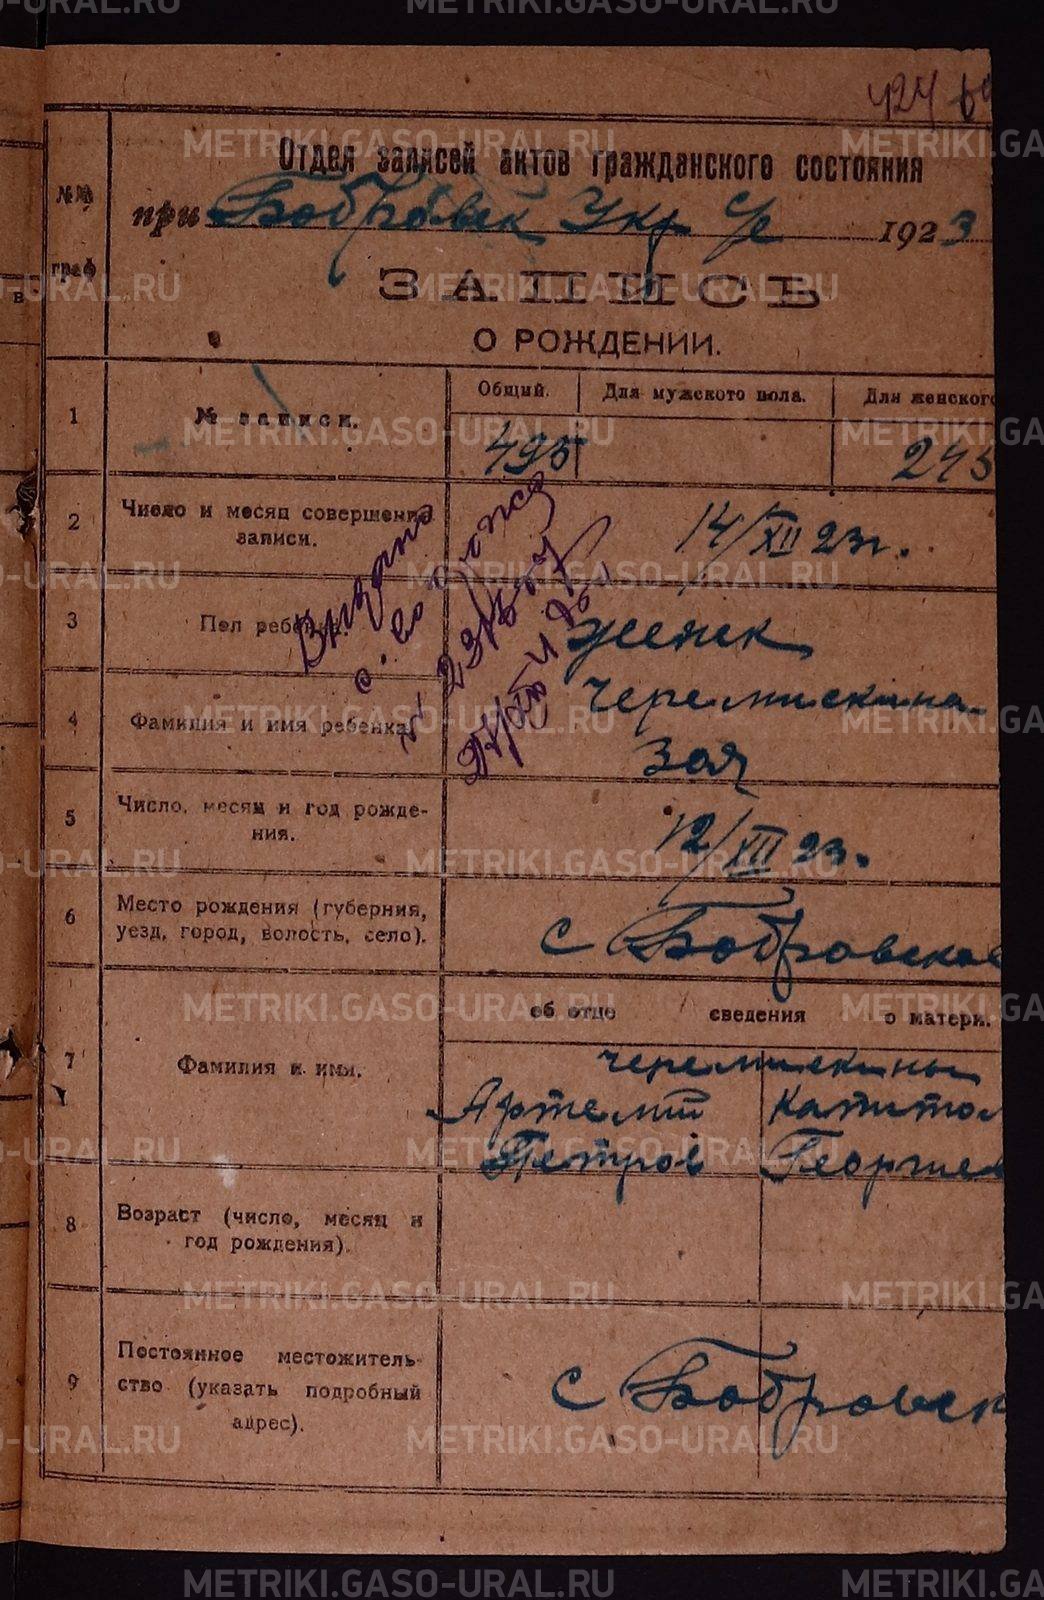 424
Отдел записей актов гражданского состояния
при Бобровск Укр с/с 1923
№№ граф
ЗАПИСЬ
О РОЖДЕНИИ.
1 № записи. Общий. Для мужского пола. Для женского
495 245
2 Число и месяц совершения записи. 14/XII 23г.
3 Пол ребенка. женск
4 Фамилия и имя ребенка. Черемискина
Зоя
5 Число, месяц и год рожде-
ния. 12/XII 23.
6 Место рождения (губерния,
уезд, город, волость, село). с Бобровское
об отце сведения о матери.
7 Фамилия и имя. Черемискины
Артемий Капитол
Петров Георгиев
8 Возраст (число, месяц и
год рождения).
9 Постоянное местожитель-
ство (указать подробный
адрес). с Бобровск
METRIKI.GASO-URAL.RU